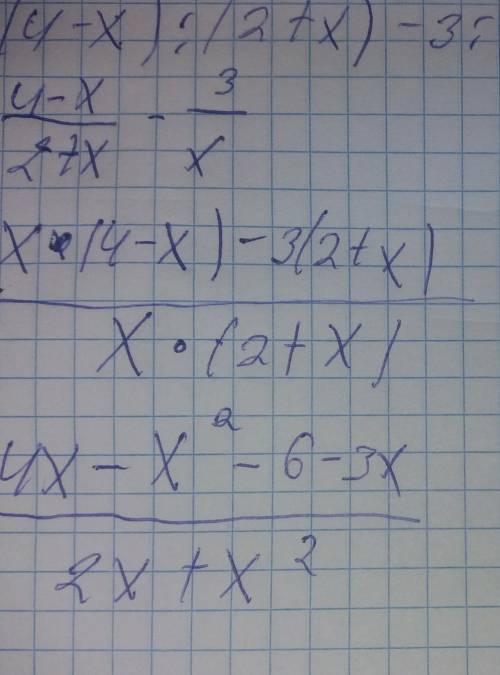 (4-x):(2+x)-3:
4-x / 2+x - 3 / x
x•(4-x)-3(2+x)
x•(2+x)
4x-x²-6-3x
2x+x²